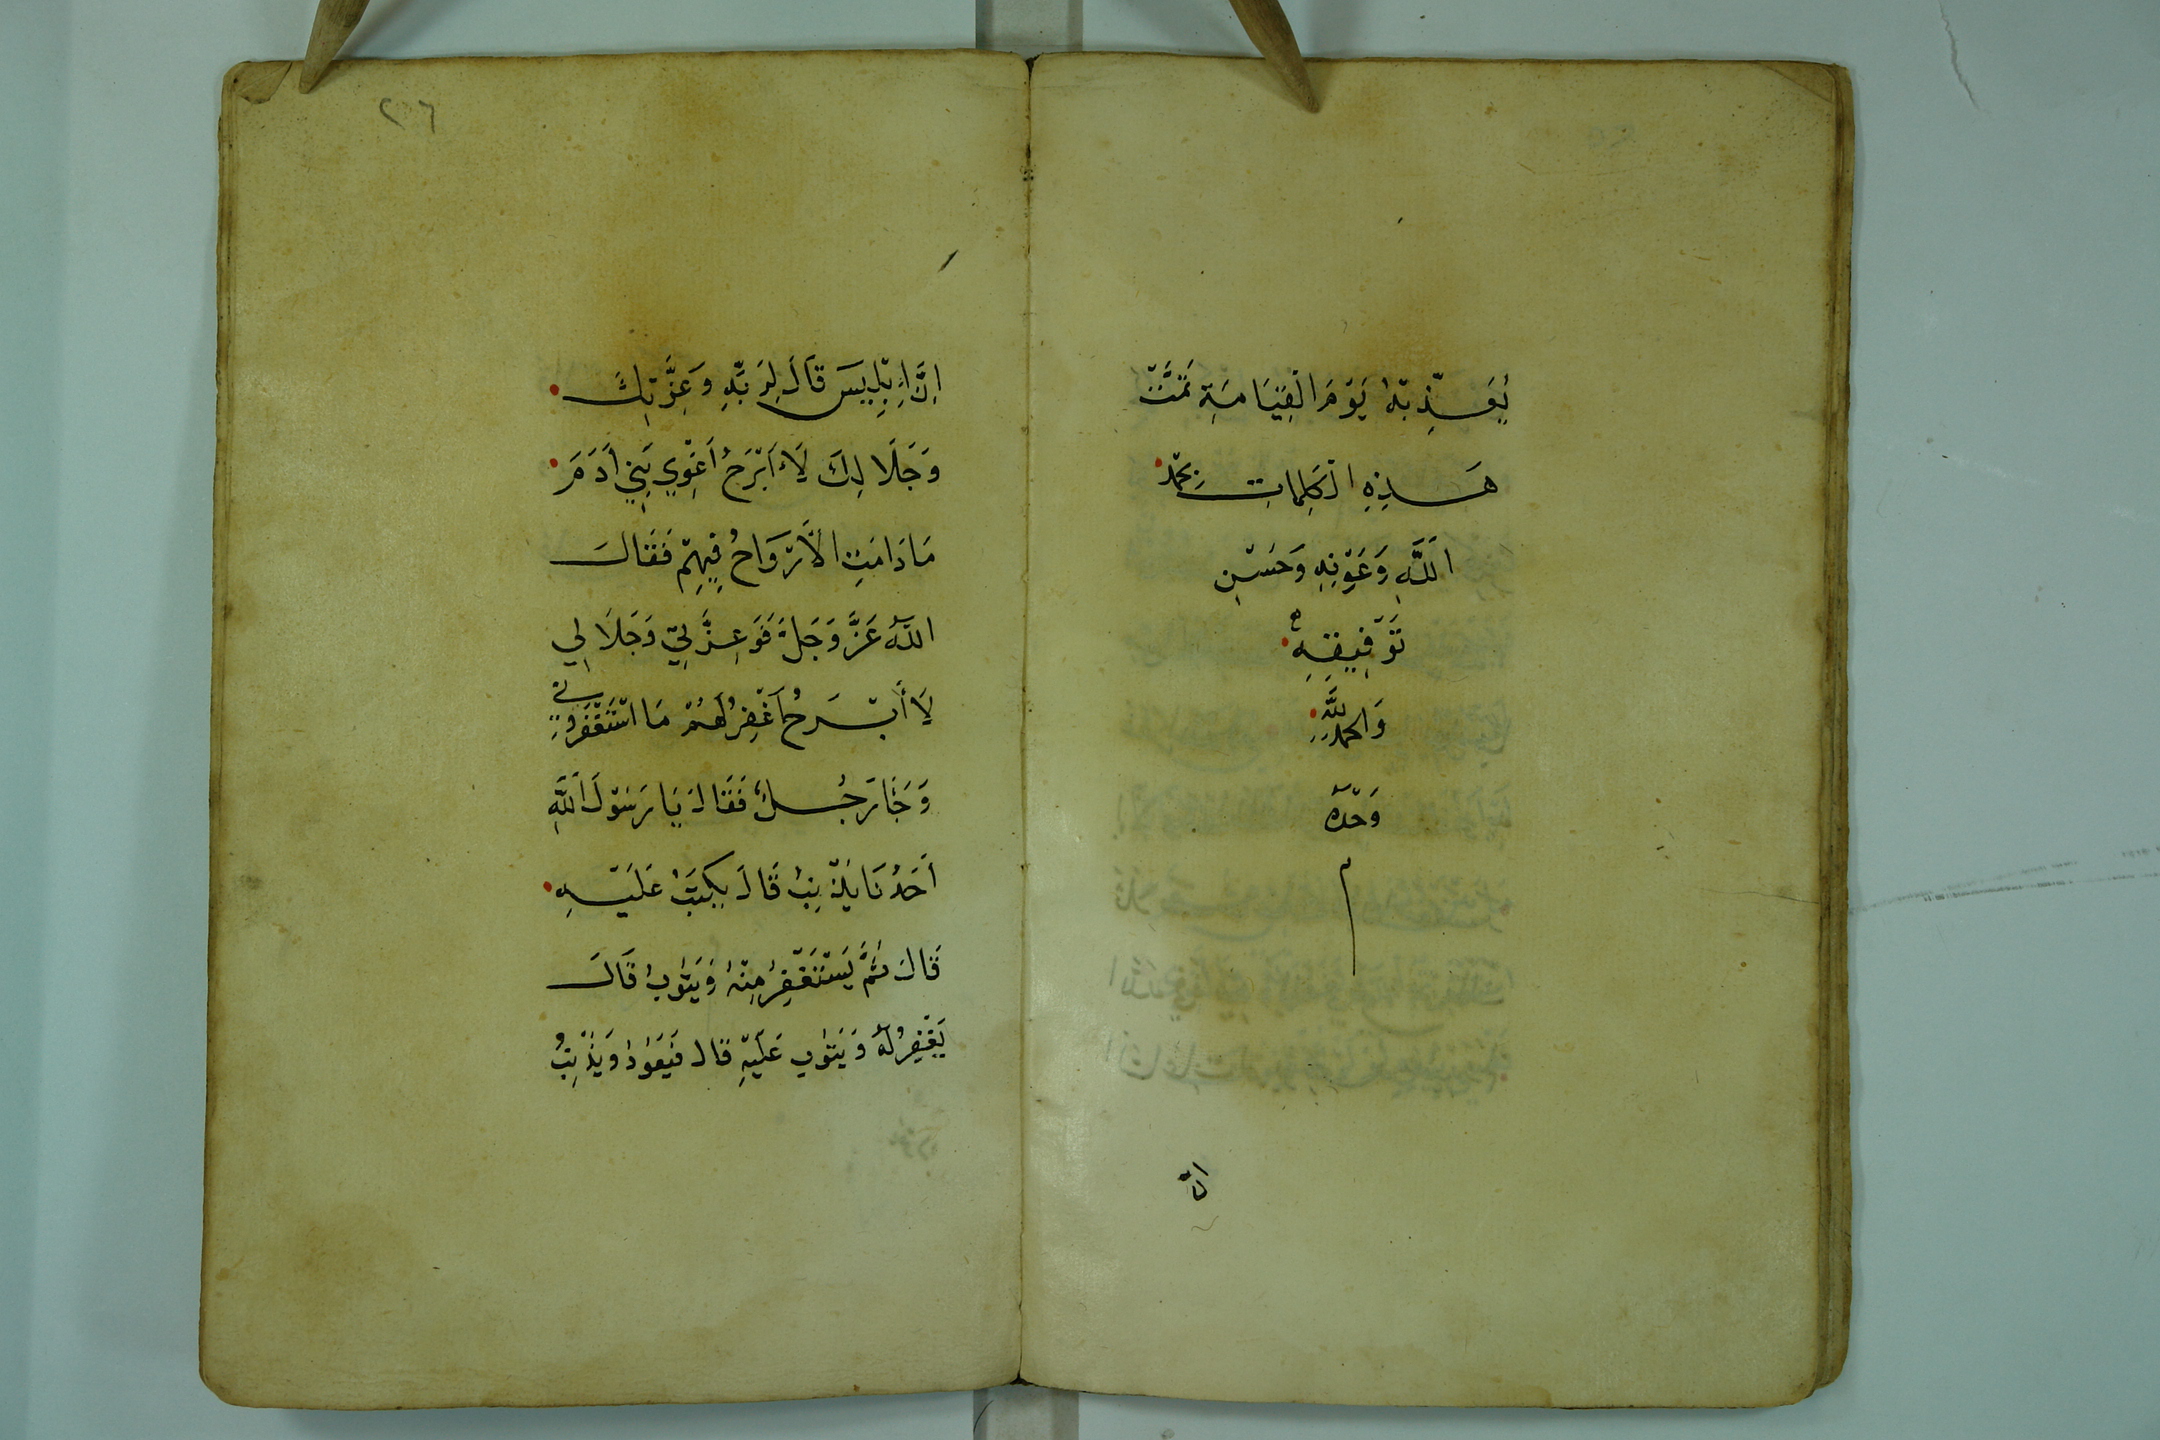 يُعَذِّبْهُ يَوْمَ الْقِيَامَةِ تَمَّتْ
هَذِهِ الْكَلِمَاتِ بِحَمْدِ
اللَّهِ وَعَوْنِهِ وَحُسْنِ
تَوْفِيقِهِ
وَالحمدُ لِلَّهِ
وَحْدَهُ
م
انّ
٢٠٦
اِنَّ اِبْلِيسَ قَالَ لِرَبِّهِ وَعِزَّتِكَ
وَجَلَالِكَ لَا أَبْرَحُ أَغْوِي بَنِي أَدَمَ
مَا دَامَتِ الْأَرْوَاحُ فِيهِمْ فَقَالَ
اللَّهُ عَزَّ وَجَلَّ فَوَعِزَّتِي وَجَلَالِي
لَا أَبْرَحُ أَغْفِرُ لَهُمْ مَا اسْتَغْفَرُونِي
وَجَاءَ رَجُلٌ فَقَالَ يَا رَسُولَ اللَّهِ
أَحَدُنَا يُذْنِبُ قَالَ يُكْتَبُ عَلَيْهِ
قَالَ ثُمَّ يَسْتَغْفِرُ مِنْهُ وَيَتُوبُ قَالَ
يَغْفِرُ لَهُ وَيَتُوبُ عَلَيْهِ قَالَ فَيَعُودُ وَيُذْنِبُ